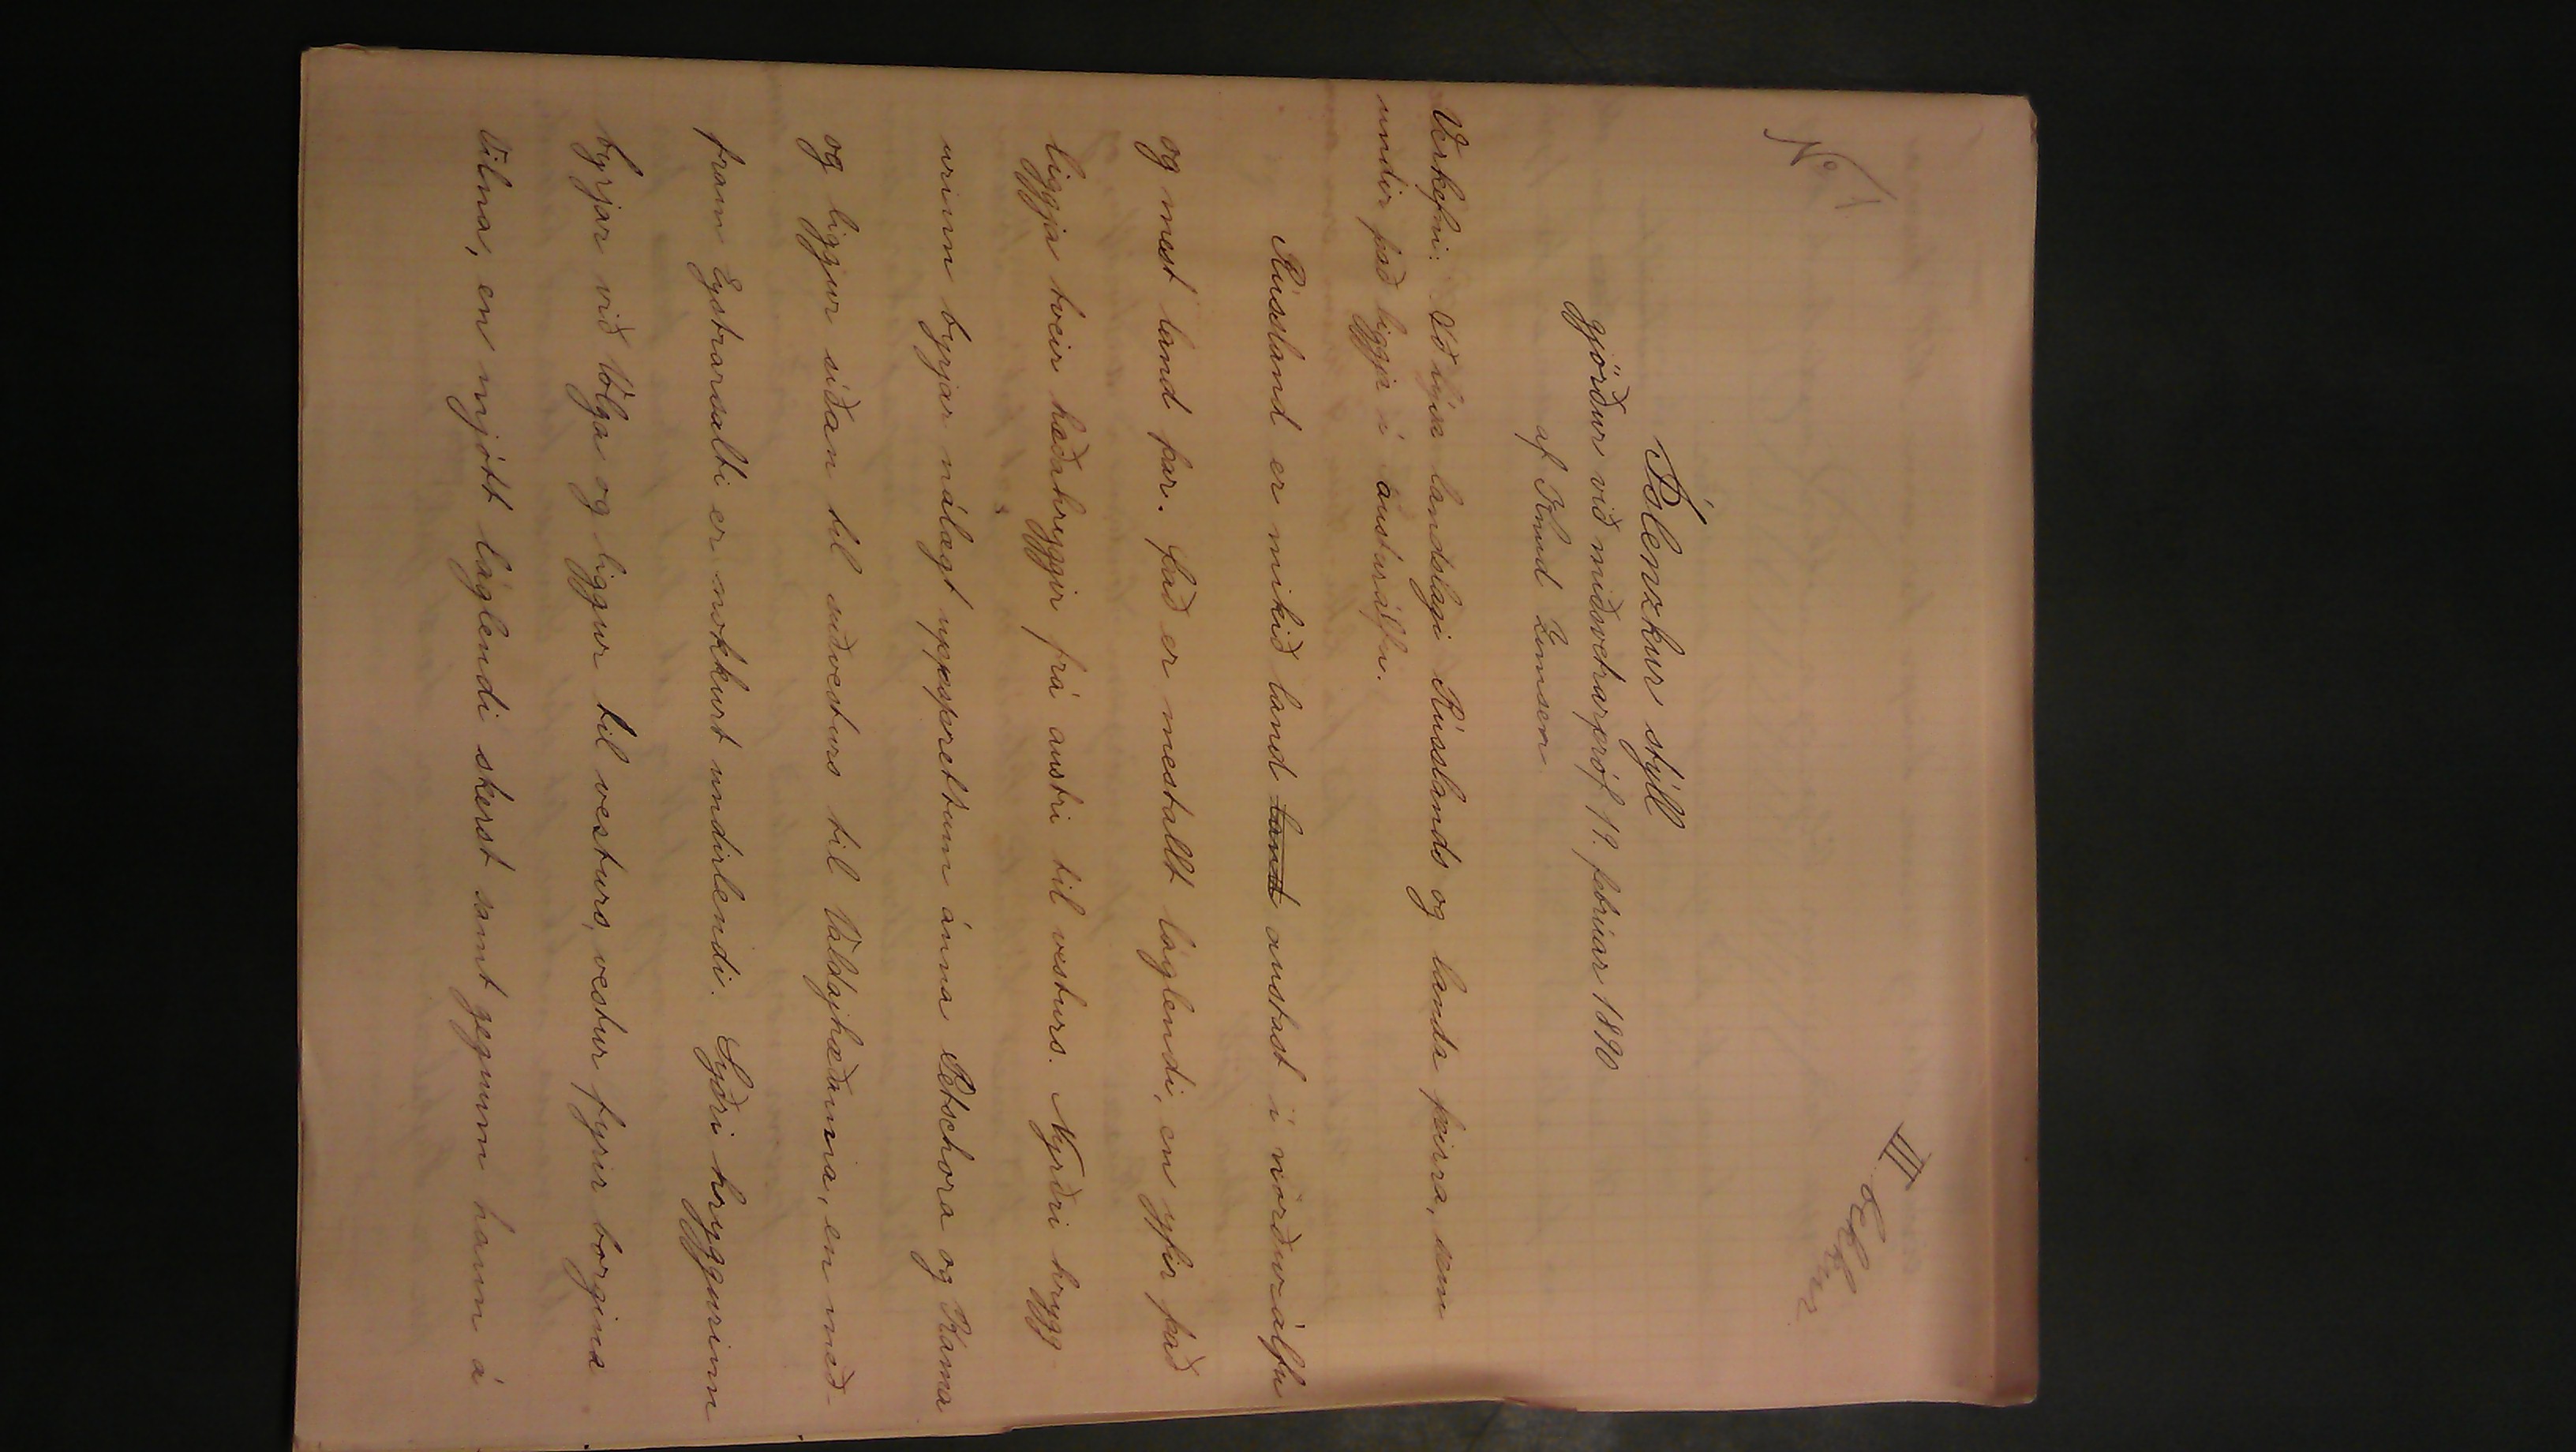 No 1
III
Íslenzkur stýll
gjörður við miðsvetrarpróf 19. febrúar 1890
af Knud Zimsen
Verkefni: Að lýsa landslagi Rússlands og landa þeirra, sem
undir það liggja í austurálfu.
Rússland er mikið land land austast í norðurálfu
og mest land þar. Það er mestallt láglendi, en yfir það
liggja tveir hæðahryggir frá austri til vesturs. Nyrðri hrygg-
urinn byrjar nálægt uppsprettum ánna Petschora og Kama
og liggur síðan til suðvesturs til Valdajhæðanna, en með-
fram Eystrarsalti er nokkurt undirlendi. Syðri hryggurinn
byrjar við Volga og liggur til vesturs, vestur fyrir borgina
Vilna, en mjótt láglendi skerst samt gegnum hann á